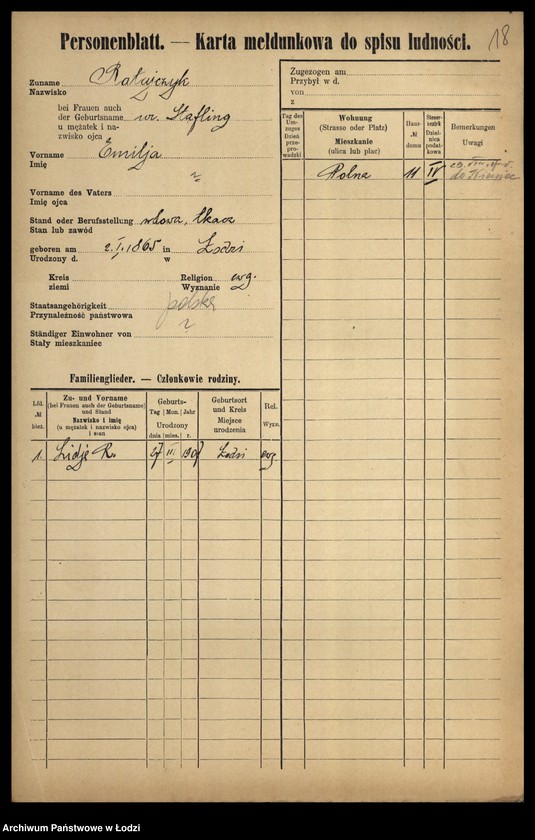 Personenblatt. — Karta meldunkowa do spisu ludności.
18
Zuname Ratajczyk
Nazwisko
bei Frauen auch
der Geburtsname
u mężatek i na-
zwisko ojca
Vorname Emilja
Imię
Vorname des Vaters
Imię ojca
Stand oder Berufsstellung wdowa, tkacz
Stan lub zawód
geboren am 2. I. 1865 in Łodzi
Urodzony d. w
Kreis Religion ewg.
ziemi Wyznanie
Staatsangehörigkeit polska
Przynależność państwowa
Ständiger Einwohner von
Stały mieszkaniec
Familienglieder. — Członkowie rodziny.
Lfd.
№
bież.
Zu- und Vorname
(bei Frauen auch der Geburtsname)
und Stand
Nazwisko i imię
(u mężatek i nazwisko ojca)
i stan
Geburts-
Tag Mon. Jahr
Urodzony
dnia mies. r.
Geburtsort
und Kreis
Miejsce
urodzenia
Rel.
Wyzn.
1. Lidje R. 27 III 1907 Łodzi ewg.
Zugezogen am
Przybył w d.
von
z
Tag des
Um-
zuges
Dzień
prze-
pro-
wadzki
Wohnung
(Strasse oder Platz)
Mieszkanie
(ulica lub plac)
Haus-
№
domu
Steuer-
bezirk
Dziel-
nica
podat-
kowa
Bemerkungen
Uwagi
Polna 11 IV
do Niemiec
Archiwum Państwowe w Łodzi